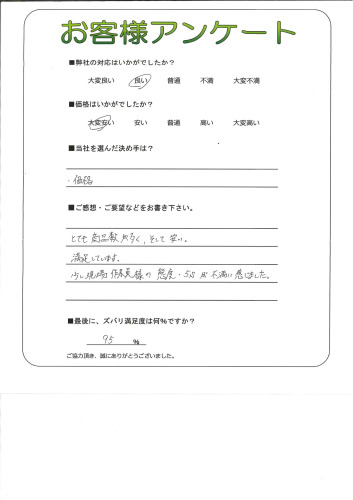 お客様アンケート
■弊社の対応はいかがでしたか？
大変良い 良い 普通 不満 大変不満
■価格はいかがでしたか？
大変安い 安い 普通 高い 大変高い
■当社を選んだ決め手は？
・価格
■ご感想・ご要望などをお書き下さい。
とても商品数が多く、そして安い。
満足しています。
少し現場作業員様の態度・が不満に感じました。
■最後に、ズバリ満足度は何%ですか？
95 %
ご協力頂き、誠にありがとうございました。